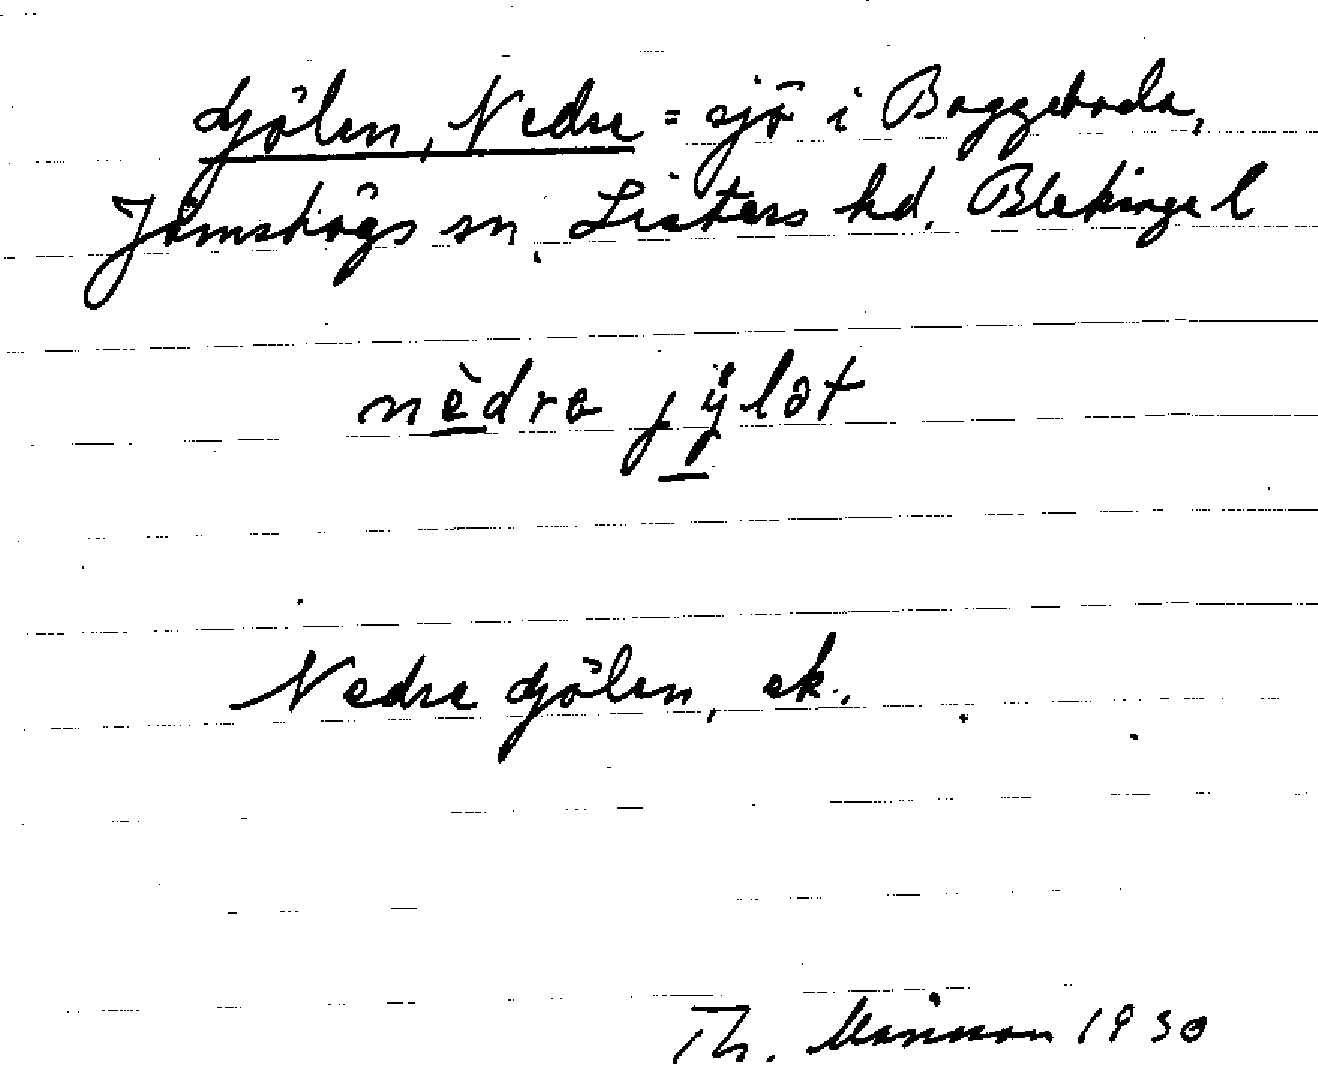 djölen, Nedre = sjö i Baggeboda,
Jämshögs sn, Listers hd. Blekinge l
nèdra jÿlət
Nedre djölen, ek.
Th. Månsson 1930